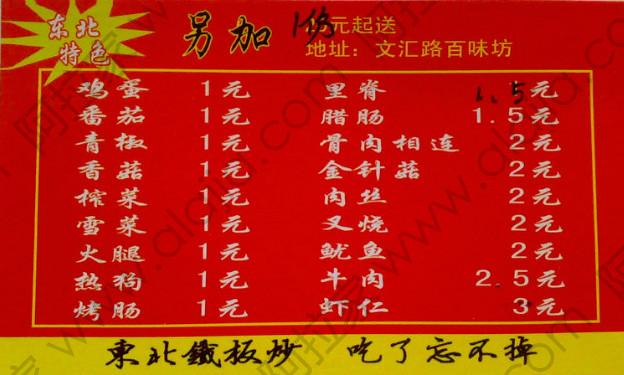 东北
特色
另加 元起送
地址：文汇路百味坊
鸡蛋 1元 里脊 1.5元
番茄 1元 腊肠 1.5元
青椒 1元 骨肉相连 2元
香菇 1元 金针菇 2元
榨菜 1元 肉丝 2元
雪菜 1元 叉烧 2元
火腿 1元 鱿鱼 2元
热狗 1元 牛肉 2.5元
烤肠 1元 虾仁 3元
東北鐵板炒 吃了忘不掉